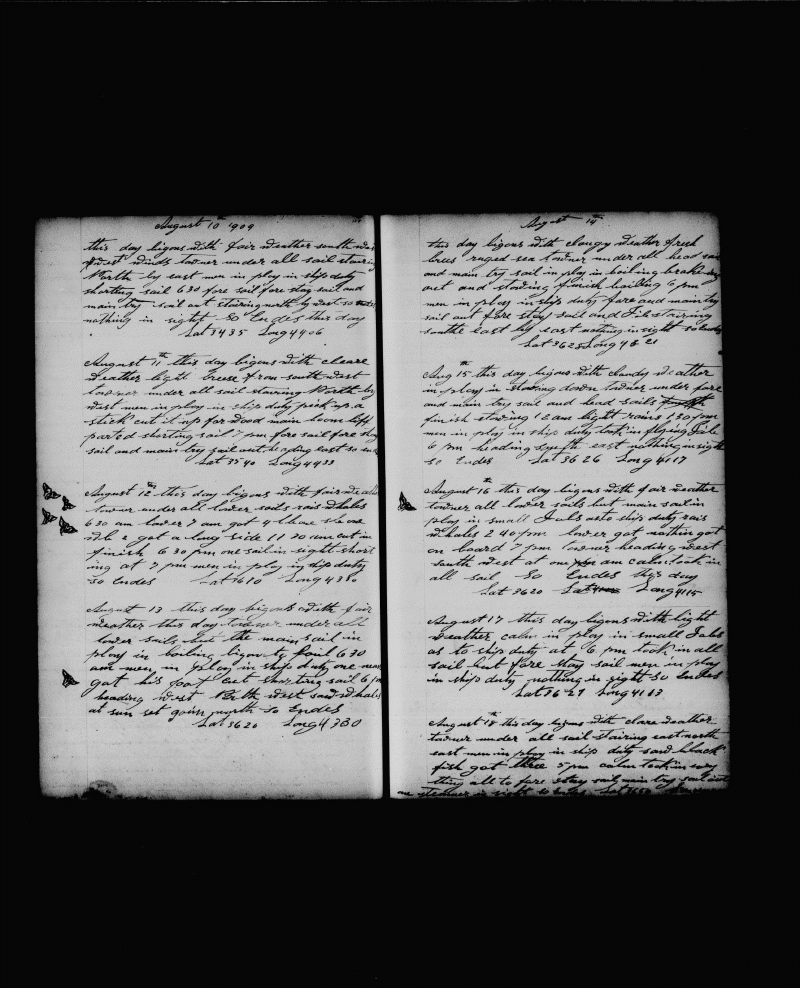 August 10th 1909
this day bigons with fair weather south west
west winds towner under all sail stairing
North by east men in ploy in ship duty
shorting sail 630 fore sail fore stay sail and
main try sail out stairing north by west
nothing in sight So Endes this day
Lat 3435 Long 4406
August 11th this day bigons with cleare
weather light breese from south west
towner under all sail stairing North by
west men in ploy in ship duty pick up a
stick cut it up for wood main boom lift
parted shorting sail 7 pm fore sail fore stay
sail and main try sail out heading east so
Lat 3540 Long 4433
August 12th this day bigons with fair weather
towner under all lower sails rais whales
630 am lower 7 am got 4
got a long side 11 30 am cut in
finish 6 30 pm one sail in sight short
ing at 7 pm men in ploy in ship duty
so Endes Lat 3610 Long 4350
August 13 this day bigons with fair
weather this day towner under all
lower sails but the main sail in
ploy in boiling 630
am men in ploy in ship duty one man
got his foot cut shorting sail 6 pm
heading west North west saw whales
at sun set goin north so Endes
Lat 3620 Long 4330
August 14th
this day bigons with clougy weather fresh
brees ruged sea towner under all head sail
and main try sail in ploy in boiling broke
out and stowing finish boiling 6 pm
men in ploy in ship duty fore and main try
sail out fore stay sail and Jib stairing
southe east by east nothing in sight so Endes
Lat 3628 Long 4321
Aug 15th this day bigons with cloudy weather
in ploy in stowing down towner under fore
and main try sail and head sails
finish stowing 12 am light rains 130 pm
men in ploy in ship duty took in flying Jib
6 pm heading south east nothing in sight
so Endes Lat 3626 Long 4117
August 16th this day bigons with fair weather
towner all lower sails but main sail in
ploy in small Jobs as to ship duty rais
whales 240 pm lower got nothin got
on board 7 pm towner heading west
south west at one am calm took in
all sail So Endes this day
Lat 3620 Long 4115
August 17 this day bigons with light
weather calm in ploy in small Jobs
as to ship duty at 6 pm took in all
sail but fore stay sail men in ploy
in ship duty nothing in sight So Endes
Lat 3629 Long 4113
August 18th this day bigons with cleare weather
towner under all sail stairing east north
east men in ploy in ship duty saw black
fish got three 5 pm calm took in evry
thing all to fore stay sail main try sail out
one steamer in sight so Endes Lat